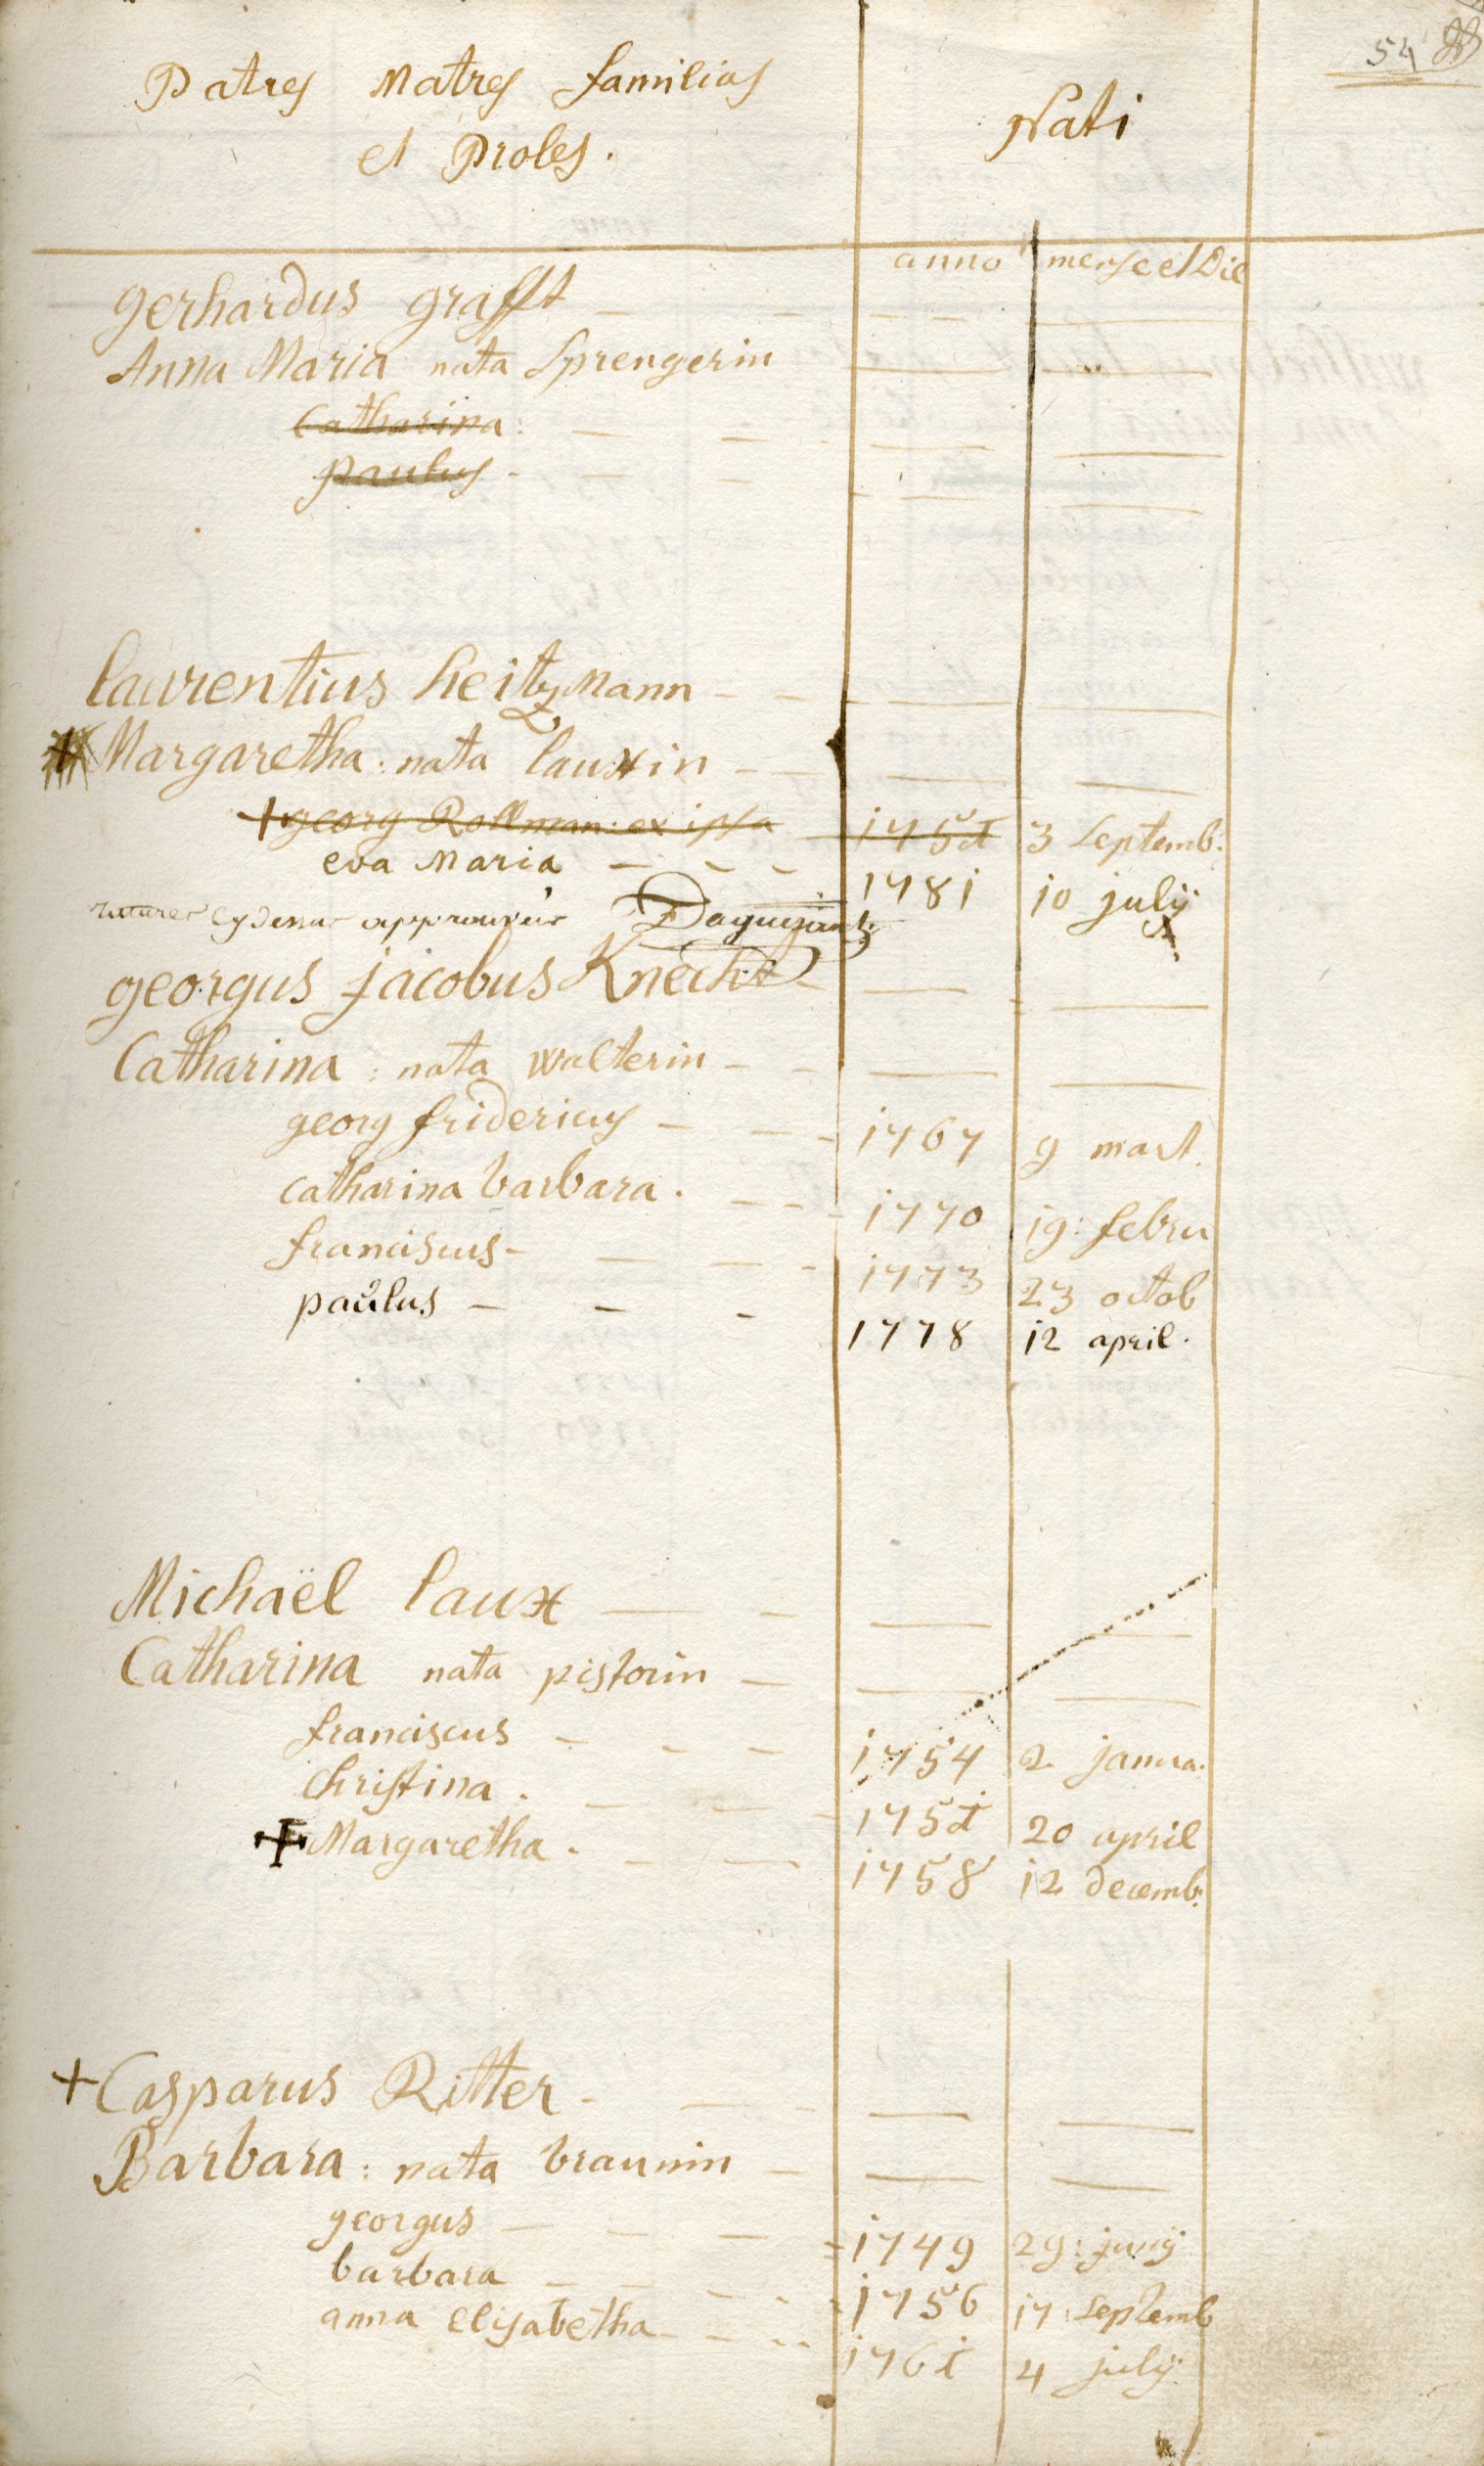 54
Patres Matres familias
et Proles.
Nati
anno mense et Die
gerhardus grafft
Anna Maria nata Sprengerin
Catharina.
paulus
laurentius heitzMann
+ Margaretha: nata lauxin
+ georg Rollman: ex ipsa 3 Septemb:
eva Maria 1781 10 julÿ
approuvée
georgus jacobus Knecht
Catharina: nata walterin
georg fridericus 1767 9 mart.
catharina barbara. 1770 19: febru
franciscus 1773 23 octob
paŭlus 1778 12 april.
Michaël laux
Catharina nata pistorin
franciscus 1754 2 janua.
Christina. 20 april
+ Margaretha. 1758 12 decemb:
+ Casparus Ritter
Barbara: nata braunin
georgus 1749 29: junÿ
barbara 1756 17 Septemb
anna elisabetha 1761 4 julÿ